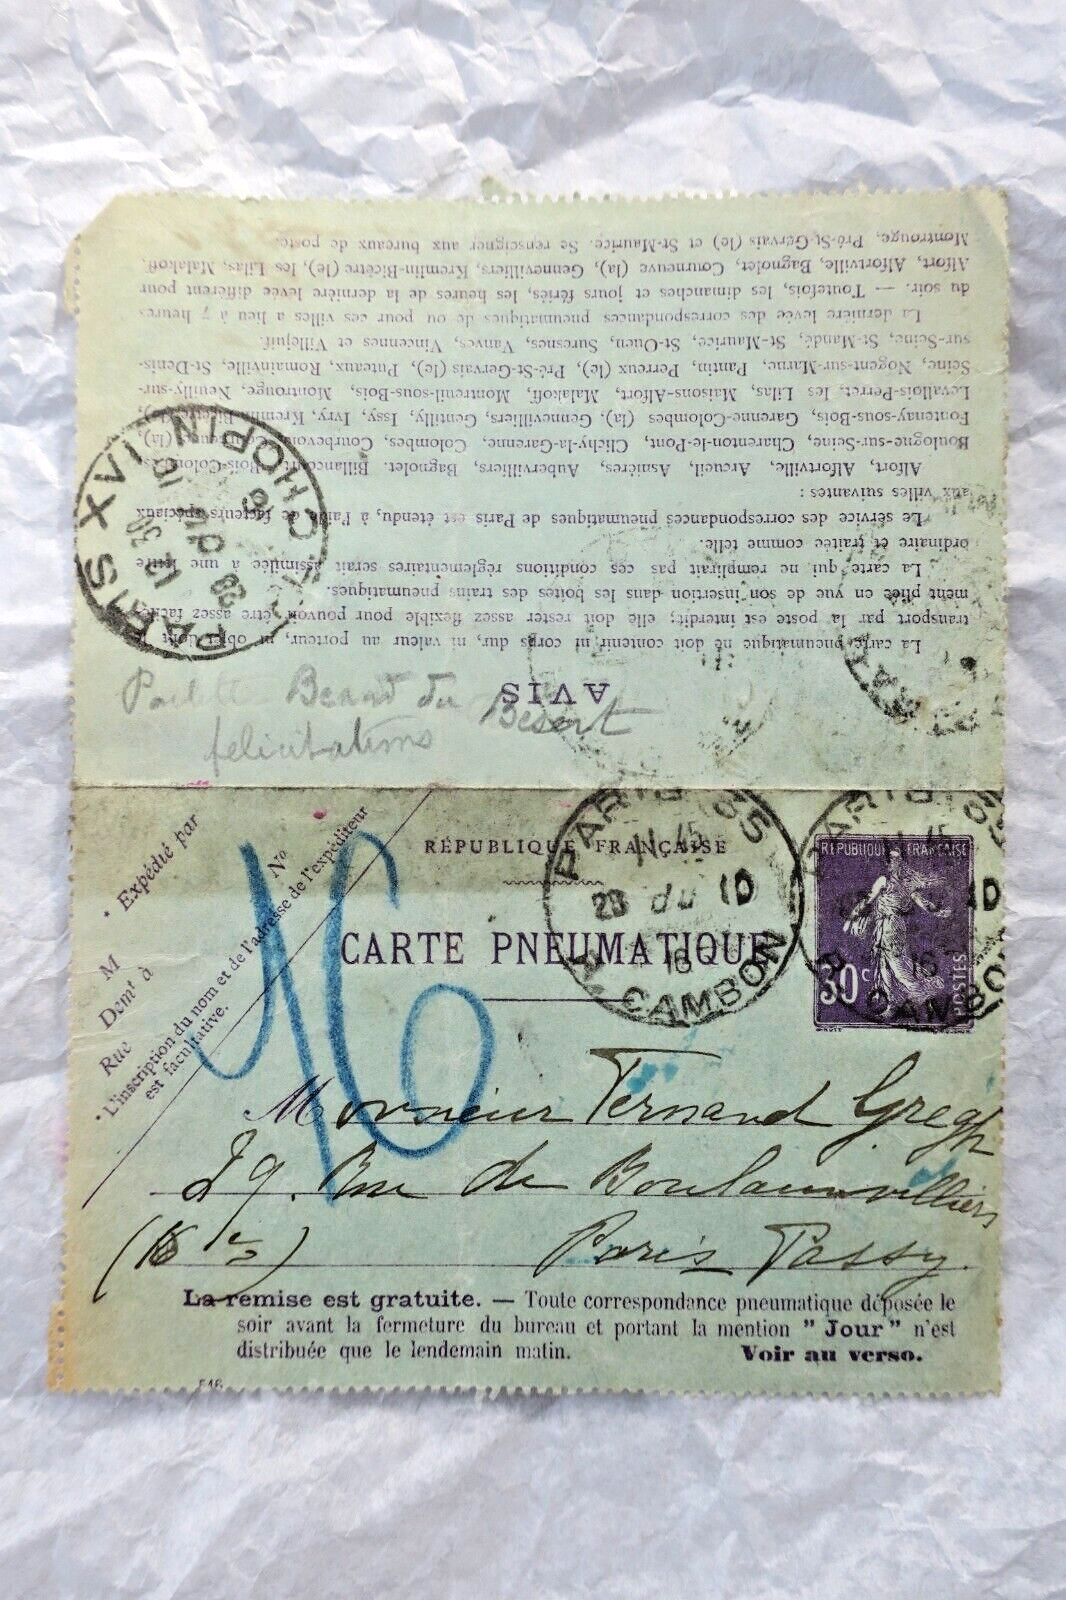 Montrouge, Pré-St-Gervais (le) et St-Maurice. Se renseigner aux bureaux de poste.
Alfort, Alfortville, Bagnolet, Courneuve (la), Gennevilliers, Kremlin-Bicêtre (le), les Lilas, Malakoff,
du soir. — Toutefois, les dimanches et jours fériés, les heures de la dernière levée diffèrent pour
La dernière levée des correspondances pneumatiques de ou pour ces villes a lieu à 7 heures
sur-Seine, St-Mandé, St-Maurice, St-Ouen, Suresnes, Vanves, Vincennes et Villejuif.
Seine, Nogent-sur-Marne, Pantin, Perreux (le), Pré-St-Gervais (le), Puteaux, Romainville, St-Denis,
Levallois-Perret, les Lilas, Maisons-Alfort, Malakoff, Montreuil-sous-Bois, Montrouge, Neuilly-sur-
Fontenay-sous-Bois, Garenne-Colombes (la), Gennevilliers, Gentilly, Issy, Ivry, Kremlin-Bicêtre (le),
Boulogne-sur-Seine, Charenton-le-Pont, Clichy-la-Garenne, Colombes, Courbevoie, Courneuve (la),
Alfort, Alfortville, Arcueil, Asnières, Aubervilliers, Bagnolet, Billancourt, Bois-Colombes,
aux villes suivantes :
Le service des correspondances pneumatiques de Paris est étendu, à l'aide de facteurs spéciaux
ordinaire et traitée comme telle.
La carte qui ne remplirait pas ces conditions réglementaires serait assimilée à une lettre
ment pliée en vue de son insertion dans les boîtes des trains pneumatiques.
transport par la poste est interdit; elle doit rester assez flexible pour pouvoir être assez facile
La carte pneumatique ne doit contenir ni corps dur, ni valeur au porteur, ni objet dont le
AVIS
PARIS XVI
R. CHOPIN
12 30
28 du 10
16
Beaud du Besert
félicitations
• Expédié par
M
Demt à
Rue
No
• L'inscription du nom et de l'adresse de l'expéditeur
est facultative.
16
RÉPUBLIQUE FRANÇAISE
CARTE PNEUMATIQUE
PARIS
11 45
28 du 10
16
R. CAMBON
REPUBLIQUE FRANÇAISE
30 c
POSTES
Monsieur Fernand Gregh
29. Rue de Boulainvilliers
(16 e) Paris Passy.
La remise est gratuite. — Toute correspondance pneumatique déposée le
soir avant la fermeture du bureau et portant la mention "Jour" n'est
distribuée que le lendemain matin. Voir au verso.
546